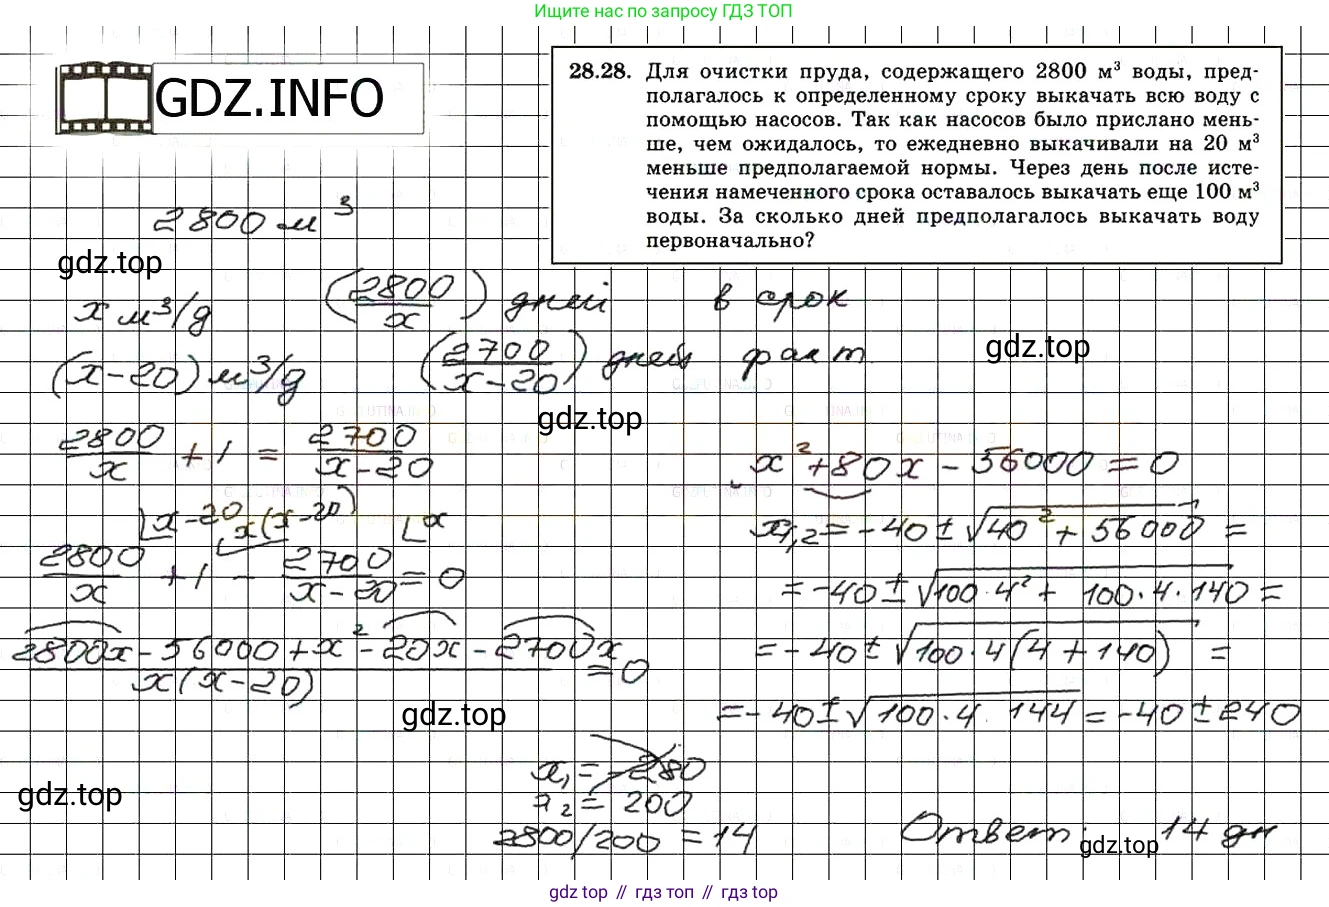 Ищите нас по запросу ГДЗ ТОП
GDZ.INFO
28.28. Для очистки пруда, содержащего 2800 м³ воды, пред-
полагалось к определенному сроку выкачать всю воду с
помощью насосов. Так как насосов было прислано мень-
ше, чем ожидалось, то ежедневно выкачивали на 20 м³
меньше предполагаемой нормы. Через день после исте-
чения намеченного срока оставалось выкачать еще 100 м³
воды. За сколько дней предполагалось выкачать воду
первоначально?
2800 м³
gdz.top
x м³/д (2800/x) дней в срок
(x-20) м³/д (2700/(x-20)) дней факт.
gdz.top
gdz.top
2800/x + 1 = 2700/(x-20)
⌊x-20 ⌊x(x-20) ⌊x
2800/x + 1 - 2700/(x-20) = 0
(2800x - 56000 + x² - 20x - 2700x)/(x(x-20)) = 0
x² + 80x - 56000 = 0
x₁,₂ = -40 ± √(40² + 56000) =
= -40 ± √(100·4² + 100·4·140) =
= -40 ± √(100·4(4+140)) =
= -40 ± √(100·4·144) = -40 ± 240
gdz.top
gdz.top
x₁ = -280
x₂ = 200
2800/200 = 14
Ответ: 14 дн
gdz.top
gdz top // гдз топ // gdz top